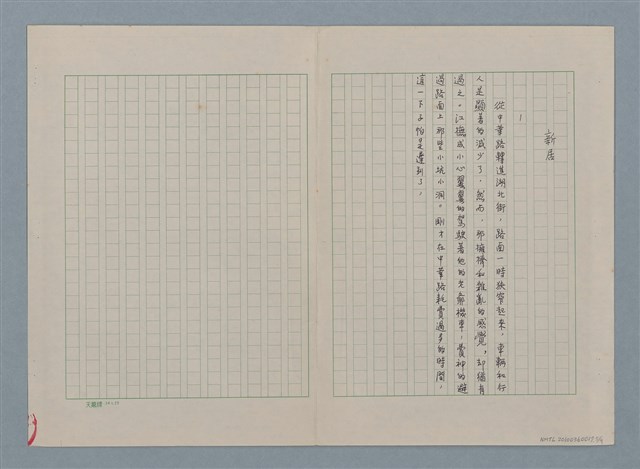 新居
1
從中華路轉進湖北街，路面一時狹窄起來，車輛和行
人是顯著的減少了，然而，那擁擠和雜亂的感覺，却猶有
過之。江德成小心翼翼的駕駛著他的光陽機車，費神的避
過路面上那些小坑小洞。剛才在中華路耗費過多的時間，
這一下子怕是遲到了。
天龍牌